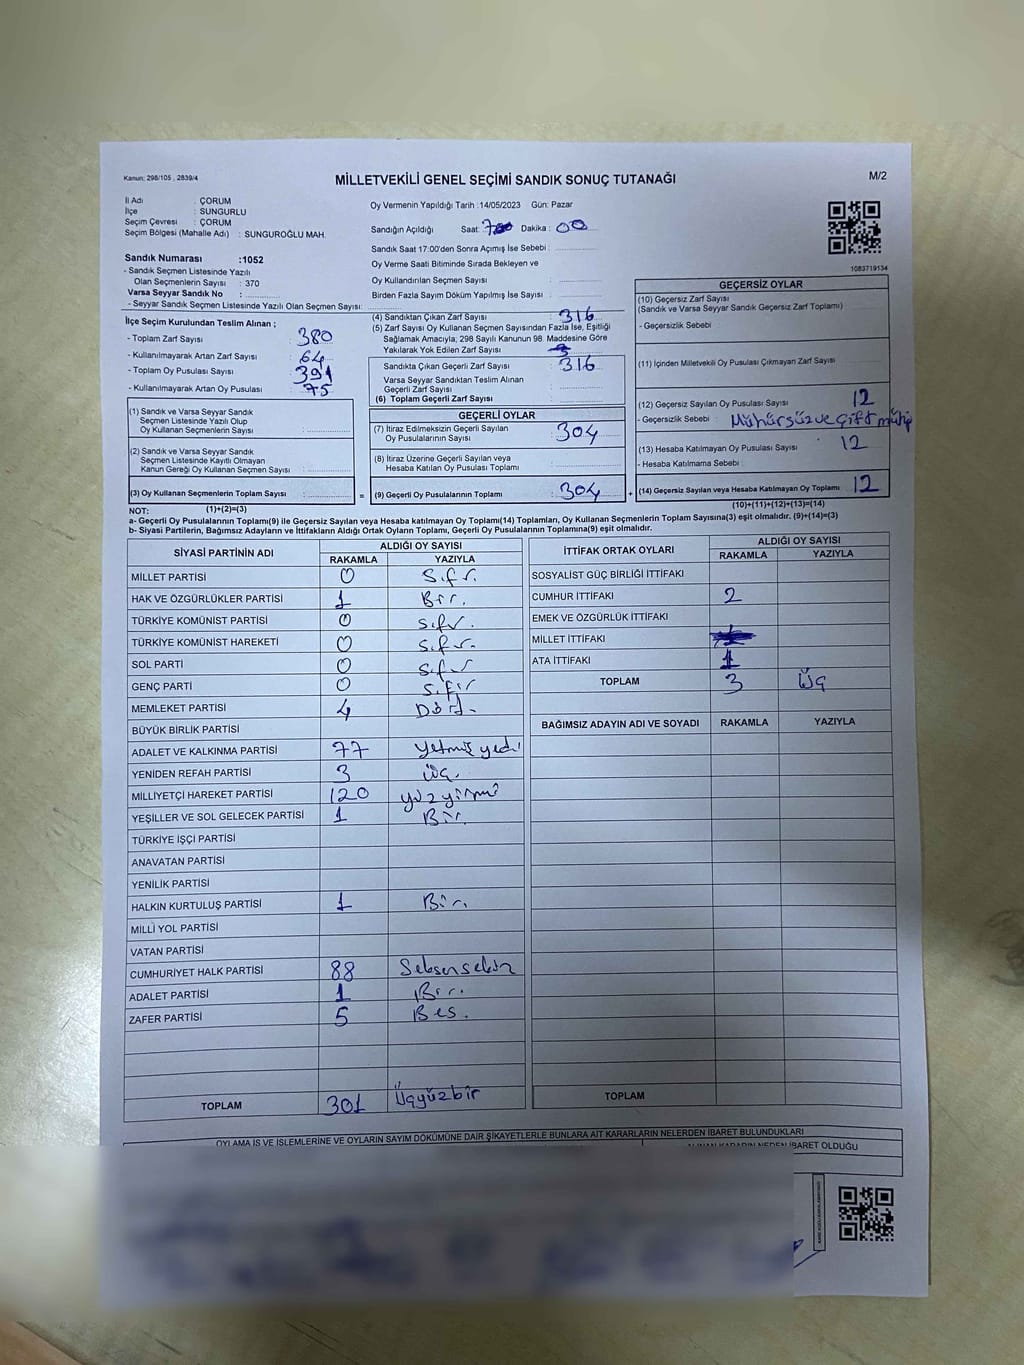 Kanun: 298/105 , 2839/4
MİLLETVEKİLİ GENEL SEÇİMİ SANDIK SONUÇ TUTANAĞI
M/2
İl Adı : ÇORUM
İlçe : SUNGURLU
Seçim Çevresi : ÇORUM
Seçim Bölgesi (Mahalle Adı) : SUNGUROĞLU MAH.
Oy Vermenin Yapıldığı Tarih :14/05/2023 Gün: Pazar
Sandığın Açıldığı Saat: Dakika : 00
Sandık Saat 17:00'den Sonra Açımış İse Sebebi :
Oy Verme Saati Bitiminde Sırada Bekleyen ve
Oy Kullandırılan Seçmen Sayısı :
Birden Fazla Sayım Döküm Yapılmış İse Sayısı :
Sandık Numarası :1052
- Sandık Seçmen Listesinde Yazılı
Olan Seçmenlerin Sayısı : 370
Varsa Seyyar Sandık No :
- Seyyar Sandık Seçmen Listesinde Yazılı Olan Seçmen Sayısı:
1083719134
İlçe Seçim Kurulundan Teslim Alınan ;
- Toplam Zarf Sayısı : 380
- Kullanılmayarak Artan Zarf Sayısı : 64
- Toplam Oy Pusulası Sayısı : 391
- Kullanılmayarak Artan Oy Pusulası : 75
(1) Sandık ve Varsa Seyyar Sandık
Seçmen Listesinde Yazılı Olup
Oy Kullanan Seçmenlerin Sayısı :
(2) Sandık ve Varsa Seyyar Sandık
Seçmen Listesinde Kayıtlı Olmayan
Kanun Gereği Oy Kullanan Seçmen Sayısı :
(3) Oy Kullanan Seçmenlerin Toplam Sayısı :
=
(4) Sandıktan Çıkan Zarf Sayısı : 316
(5) Zarf Sayısı Oy Kullanan Seçmen Sayısından Fazla İse, Eşitliği
Sağlamak Amacıyla; 298 Sayılı Kanunun 98. Maddesine Göre
Yakılarak Yok Edilen Zarf Sayısı
Sandıkta Çıkan Geçerli Zarf Sayısı : 316
Varsa Seyyar Sandıktan Teslim Alınan
Geçerli Zarf Sayısı :
(6) Toplam Geçerli Zarf Sayısı :
GEÇERLİ OYLAR
(7) İtiraz Edilmeksizin Geçerli Sayılan
Oy Pusulalarının Sayısı : 304
(8) İtiraz Üzerine Geçerli Sayılan veya
Hesaba Katılan Oy Pusulası Toplamı :
(9) Geçerli Oy Pusulalarının Toplamı : 304
+
GEÇERSİZ OYLAR
(10) Geçersiz Zarf Sayısı
(Sandık ve Varsa Seyyar Sandık Geçersiz Zarf Toplamı) :
- Geçersizlik Sebebi :
(11) İçinden Milletvekili Oy Pusulası Çıkmayan Zarf Sayısı :
(12) Geçersiz Sayılan Oy Pusulası Sayısı : 12
- Geçersizlik Sebebi : Mühürsüz ve Çift
(13) Hesaba Katılmayan Oy Pusulası Sayısı : 12
- Hesaba Katılmama Sebebi :
(14) Geçersiz Sayılan veya Hesaba Katılmayan Oy Toplamı : 12
NOT: (1)+(2)=(3)
(10)+(11)+(12)+(13)=(14)
a- Geçerli Oy Pusulalarının Toplamı(9) ile Geçersiz Sayılan veya Hesaba katılmayan Oy Toplamı(14) Toplamları, Oy Kullanan Seçmenlerin Toplam Sayısına(3) eşit olmalıdır. (9)+(14)=(3)
b- Siyasi Partilerin, Bağımsız Adayların ve İttifakların Aldığı Ortak Oyların Toplamı, Geçerli Oy Pusulalarının Toplamına(9) eşit olmalıdır.
SİYASİ PARTİNİN ADI ALDIĞI OY SAYISI
RAKAMLA YAZIYLA
MİLLET PARTİSİ 0 Sıfır.
HAK VE ÖZGÜRLÜKLER PARTİSİ 1 Bir.
TÜRKİYE KOMÜNİST PARTİSİ 0 Sıfır.
TÜRKİYE KOMÜNİST HAREKETİ 0 Sıfır.
SOL PARTİ 0 Sıfır
GENÇ PARTİ 0 Sıfır
MEMLEKET PARTİSİ 4 Dört.
BÜYÜK BİRLİK PARTİSİ
ADALET VE KALKINMA PARTİSİ 77 Yetmiş yedi
YENİDEN REFAH PARTİSİ 3 Üç.
MİLLİYETÇİ HAREKET PARTİSİ 120 yüz yirmi
YEŞİLLER VE SOL GELECEK PARTİSİ 1 Bir.
TÜRKİYE İŞÇİ PARTİSİ
ANAVATAN PARTİSİ
YENİLİK PARTİSİ
HALKIN KURTULUŞ PARTİSİ 1 Bir.
MİLLİ YOL PARTİSİ
VATAN PARTİSİ
CUMHURİYET HALK PARTİSİ 88 Seksensekiz
ADALET PARTİSİ 1 Bir.
ZAFER PARTİSİ 5 Bes.
TOPLAM 301 Üçyüzbir
İTTİFAK ORTAK OYLARI ALDIĞI OY SAYISI
RAKAMLA YAZIYLA
SOSYALİST GÜÇ BİRLİĞİ İTTİFAKI
CUMHUR İTTİFAKI 2
EMEK VE ÖZGÜRLÜK İTTİFAKI
MİLLET İTTİFAKI
ATA İTTİFAKI 1
TOPLAM 3 Üç
BAĞIMSIZ ADAYIN ADI VE SOYADI RAKAMLA YAZIYLA
TOPLAM
OYLAMA İŞ VE İŞLEMLERİNE VE OYLARIN SAYIM DÖKÜMÜNE DAİR ŞİKAYETLERLE BUNLARA AİT KARARLARIN NELERDEN İBARET BULUNDUKLARI
ALINAN KARARIN NEDEN İBARET OLDUĞU